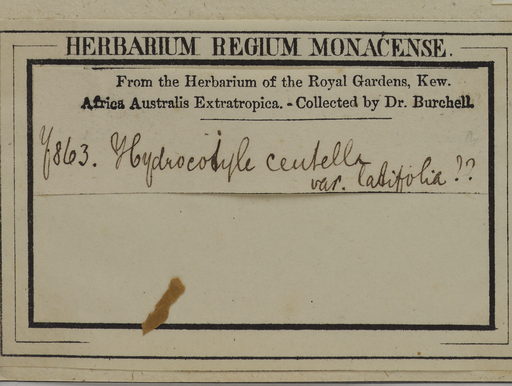 HERBARIUM REGIUM MONACENSE.
From the Herbarium of the Royal Gardens, Kew.
Africa Australis Extratropica. - Collected by Dr. Burchell.
7863. Hydrocotyle centella
var. latifolia ??